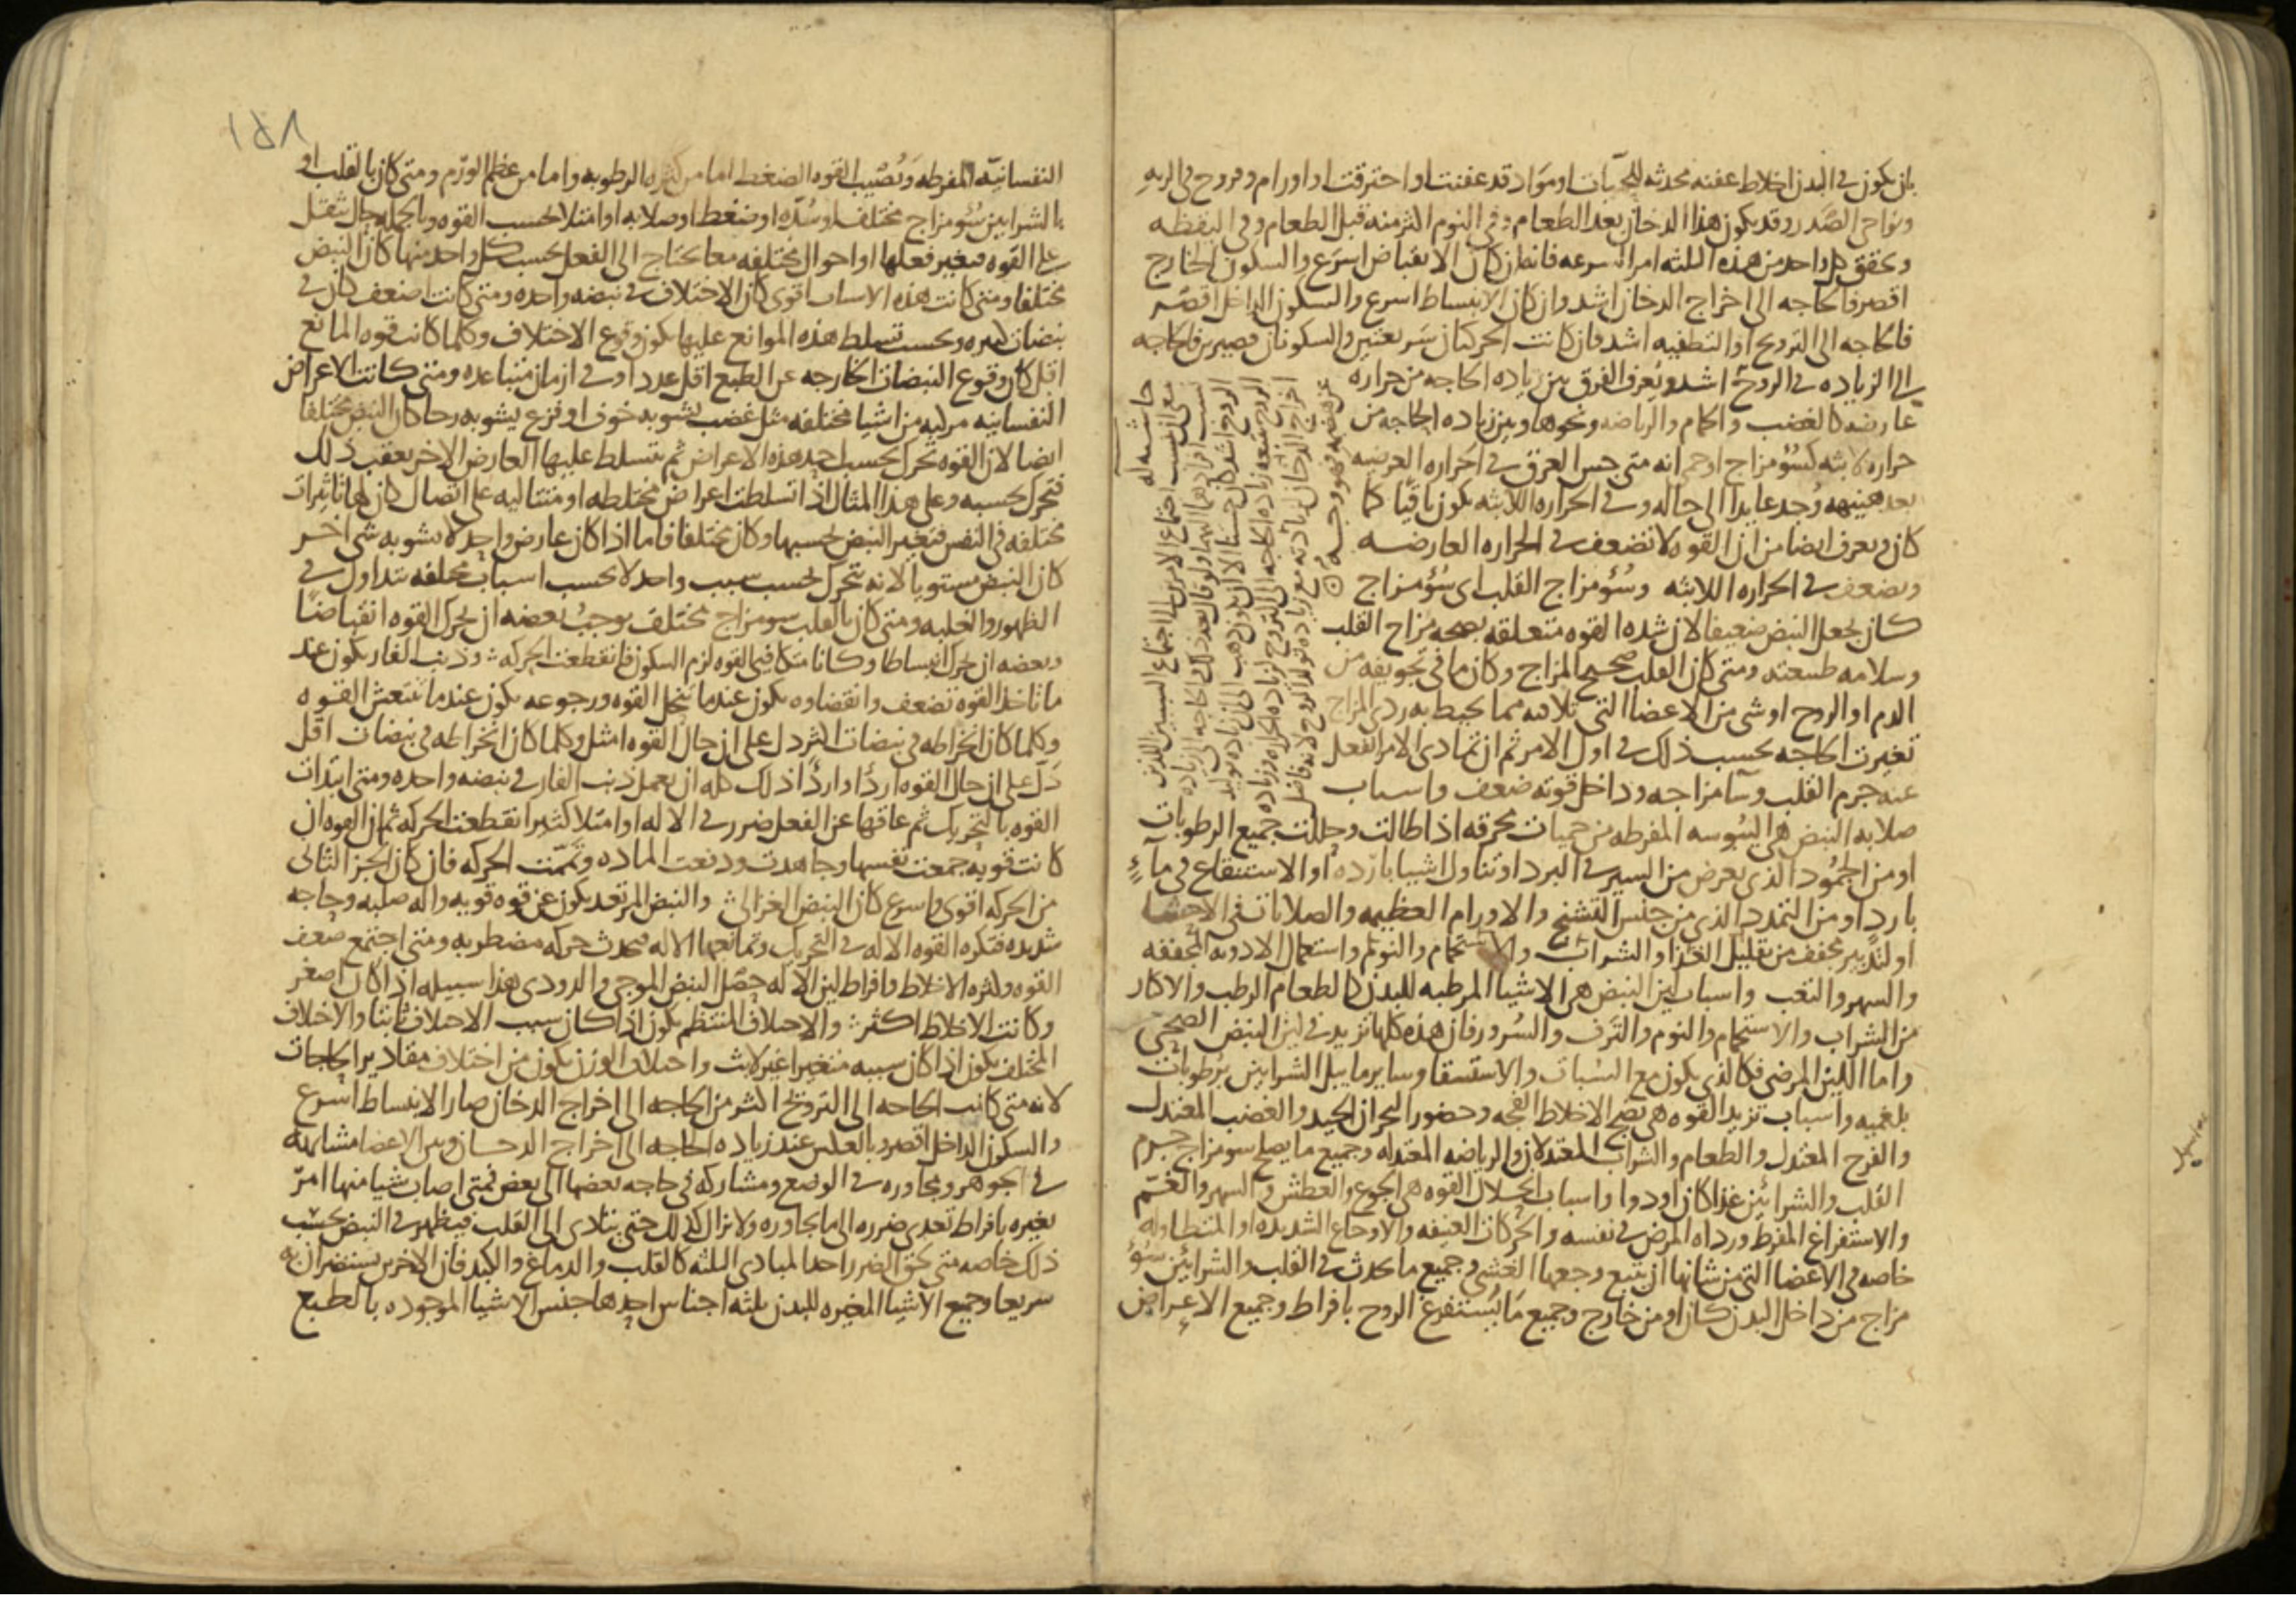 بان يكون في البدن اخلاط عفنه محدثه للحميات او مواد قد عفنت او احترقت او اورام وقروح في الريه
ونواحي الصدر وقد يكون هذا الدخان بعد الطعام وفي النوم اكثر منه قبل الطعام وفي اليقظه
وتحقق كل واحد من هذه الثلثه امر السرعه فانه ان كان الانقباض اسرع والسكون الخارج
اقصر فالحاجه الى اخراج الدخان اشد وان كان الانبساط اسرع والسكون الداخل اقصر
فالحاجه الى الترويح او التطفيه اشد فان كانت الحركتان سريعتين والسكونان قصيرين فالحاجه
الى الزياده في الروح اشد ويعرف الفرق بين زياده الحاجه من حراره
عارضه كالغضب والحمام والرياضه ونحوها وبين زياده الحاجه من
حراره لابثه كسؤ مزاج او حمى انه متى جس العرق في الحراره العرضيه
بعد هنيهه وجد عايدا الى حاله وفي الحراره اللابثه يكون باقيا كما
كان ويعرف ايضا من ان القوه لا تضعف في الحراره العارضه
وتضعف في الحراره اللابثه وسؤ مزاج القلب اي سؤ مزاج
كان يجعل النبض ضعيفا لان شده القوه متعلقه بصحه مزاج القلب
وسلامه طبيعته ومتى كان القلب صحيح المزاج وكان ما في تجويفه من
الدم او الروح او شي من الاعضا التي تلاقيه مما يحيط به ردي المزاج
تغيرت الحاجه بحسب ذلك في اول الامر ثم ان تمادى الامر انفعل
عنه جرم القلب وسآ مزاجه وداخل قوته ضعف واسباب
صلابه النبض هي اليبوسه المفرطه من حميات محرقه اذا طالت وحللت جميع الرطوبات
او من الجمود الذي يعرض من السير في البرد او تناول اشيا بارده او الاستنقاع في مآء
بارد او من التمدد الذي من جنس التشنج والاورام العظيمه والصلابات في الاحشا
او لتدبير مجفف من تقليل الغذا والشراب والاستحمام والنوم واستعمال الادويه المجففه
والسهر والتعب واسباب لين النبض هي الاشيا المرطبه للبدن كالطعام الرطب والاكثار
من الشراب والاستحمام والنوم والترف والسرور فان هذه كلها تزيد في لين النبض الصحي
واما اللين المرضي فكالذي يكون مع السبات والاستسقا وساير ما يبل الشرايين برطوبات
بلغميه واسباب تزيد القوه هي نضج الاخلاط الفجه وحضور البحران الجيد والغضب المعتدل
والفرح المعتدل والطعام والشراب المعتدلان والرياضه المعتدله وجميع ما يصلح سو مزاج جرم
القلب والشرائين غذا كان او دوا واسباب انحلال القوه هي الجوع والعطش والسهر والغم
والاستفراغ المفرط ورداه المرض في نفسه والحركات العنيفه والاوجاع الشديده او المتطاوله
خاصه في الاعضا التي من شانها ان يتبع وجعها الغشي وجميع ما يحدث في القلب والشرائين سؤ
مزاج من داخل البدن كان او من خارج وجميع ما يستفرغ الروح بافراط وجميع الاعراض
حاشيه له
١٥٨
النفسانيه المفرطه وتصيب القوه الضغط اما من كثره الرطوبه واما من عظم الورم ومتى كان بالقلب او
بالشرايين سؤ مزاج مختلف او سده او ضغط او صلابه او امتلا بحسب القوه وبالجمله حال تثقل
على القوه فيغير فعلها او احوال مختلفه معا تحتاج الى الفعل بحسب كل واحد منها كان النبض
مختلفا ومتى كانت هذه الاسباب اقوى كان الاختلاف في نبضه واحده ومتى كانت اضعف كان في
نبضات كثيره وبحسب تسلط هذه الموانع عليها يكون وقوع الاختلاف وكلما كانت قوه المانع
اقل كان وقوع النبضات الخارجه عن الطبع اقل عددا وفي ازمان متباعده ومتى كانت الاعراض
النفسانيه مركبه من اشيا مختلفه مثل غضب يشوبه خوف او فزع يشوبه رجا كان النبض مختلفا
ايضا لان القوه تتحرك بحسب احد هذه الاعراض ثم يتسلط عليها العارض الاخر بعقب ذلك
فتتحرك بحسبه وعلى هذا المثال اذا تسلطت اعراض مختلطه او متتاليه على اتصال كان لها تاثيرات
مختلفه في النفس فتغير النبض بحسبها وكان مختلفا فاما اذا كان عارض واحد لا يشوبه شي اخر
كان النبض مستويا لانه يتحرك بحسب سبب واحد لا بحسب اسباب مختلفه تتداول في
الظهور والغلبه ومتى كان بالقلب سو مزاج مختلف يوجب بعضه ان يحرك القوه انقباضا
وبعضه ان يحرك انبساطا وكانا متكافيين القوه لزم السكون فانقطعت الحركه وذنب الفار يكون عند
ما تاخذ القوه تضعف وانقضاوه يكون عندما تنحل القوه ورجوعه يكون عندما تنتعش القوه
وكلما كان انخراطه في نبضات اكثر دل على ان حال القوه امثل وكلما كان انخراطه في نبضات اقل
دل على ان حال القوه اردأ واردأ ذلك كله ان يعمل ذنب الفار في نبضه واحده ومتى ابتدات
القوه بالتحريك ثم عاقها عن الفعل ضرر في الاله او امتلا كثير انقطعت الحركه ثم ان القوه ان
كانت قويه جمعت نفسها وجاهدت ودفعت الماده وتممت الحركه فان كان الجز الثاني
من الحركه اقوى واسرع كان النبض الغزالي والنبض المرتعد يكون عن قوه قويه واله صلبه وحاجه
شديده فتكره القوه الاله في التحريك وتمانعها الاله فتحدث حركه مضطربه ومتى اجتمع ضعف
القوه وكثره الاخلاط وافراط لين الاله حصل النبض الموجي والدودي هذا سبيله اذا كان اصغر
وكانت الاخلاط اكثر والاختلاف المنتظم يكون اذا كان سبب الاختلاف ثابتا والاختلاف
المختلف يكون اذا كان سببه متغيرا غير لابث واختلاف الوزن يكون من اختلاف مقادير الحاجات
لانه متى كانت الحاجه الى الترويح اكثر من الحاجه الى اخراج الدخان صار الانبساط اسرع
والسكون الداخل اقصر وبالعكس عند زياده الحاجه الى اخراج الدخان وبين الاعضا مشابهه
في الجوهر ومجاوره في الوضع ومشاركه في حاجه بعضها الى بعض فمتى اصاب شيا منها امر
يغيره بافراط تعدى ضرره الى ما يجاوره ولا يزال كذلك حتى يتادى الى القلب فيظهر في النبض بحسب
ذلك خاصه متى لحق الضرر احد المبادي الثلثه كالقلب والدماغ والكبد فان الاخرين يستضران به
سريعا وجميع الاشيا المغيره للبدن ثلثه اجناس احدها جنس الاشيا الموجوده بالطبع